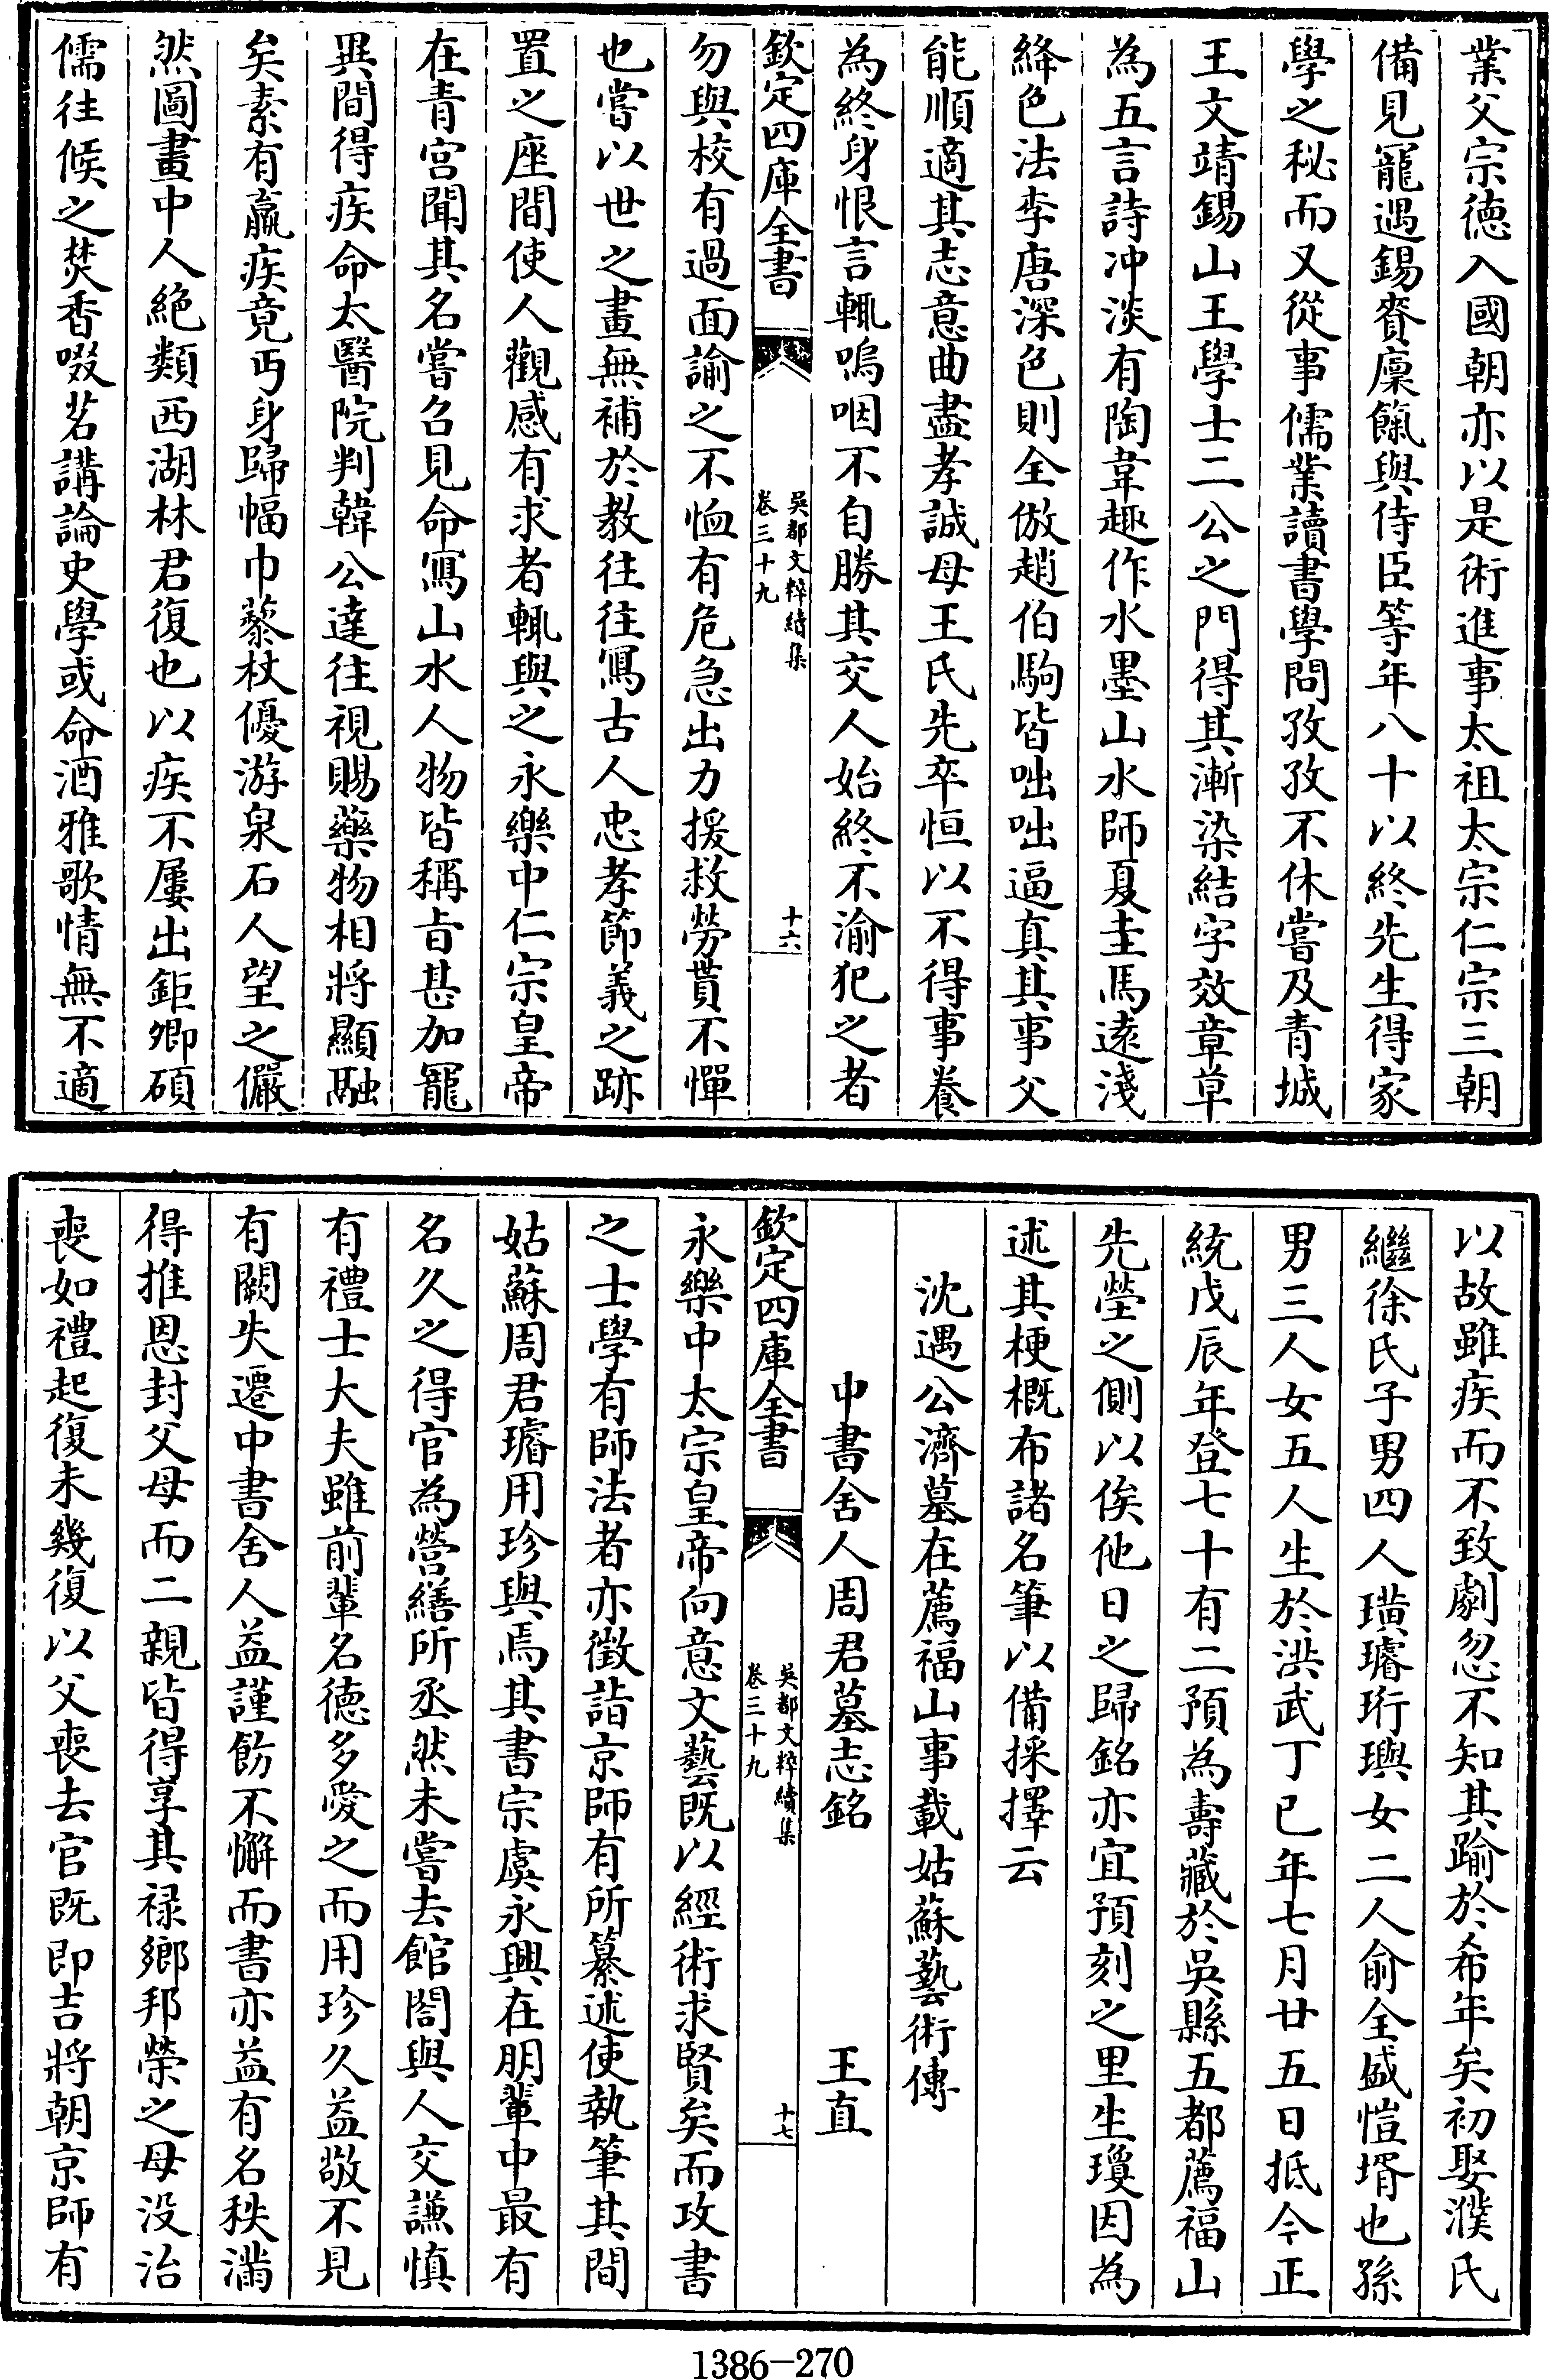 業父宗德入國朝亦以是術進事太祖太宗仁宗三朝
備見寵遇錫賚廩餼與侍臣等年八十以終先生得家
學之秘而又從事儒業讀書學問孜孜不休嘗及青城
王文靖錫山王學士二公之門得其漸染結字效章草
為五言詩沖淡有陶韋趣作水墨山水師夏圭馬遠淺
絳色法李唐深色則全倣趙伯駒皆咄咄逼真其事父
能順適其志意曲盡孝誠母王氏先卒恒以不得事養
為終身恨言輒嗚咽不自勝其交人始終不渝犯之者
欽定四庫全書
吳都文粹續集
卷三十九
十六
勿與校有過面諭之不恤有危急出力援救勞費不憚
也嘗以世之畫無補於教往往寫古人忠孝節義之跡
置之座間使人觀感有求者輒與之永樂中仁宗皇帝
在青宮聞其名嘗召見命寫山水人物皆稱旨甚加寵
異間得疾命太醫院判韓公達往視賜藥物相將顯融
矣素有羸疾竟丐身歸幅巾藜杖優游泉石人望之儼
然圖畫中人絕類西湖林君復也以疾不屢出鉅卿碩
儒往候之焚香啜茗講論史學或命酒雅歌情無不適
以故雖疾而不致劇忽不知其踰於希年矣初娶濮氏
繼徐氏子男四人璜璿珩璵女二人俞全盛愷壻也孫
男三人女五人生於洪武丁巳年七月廿五日抵今正
統戊辰年登七十有二預為壽藏於吳縣五都薦福山
先塋之側以俟他日之歸銘亦宜預刻之里生瓊因為
述其梗概布諸名筆以備採擇云
沈遇公濟墓在薦福山事載姑蘇藝術傳
中書舍人周君墓志銘
王直
欽定四庫全書
吳都文粹續集
卷三十九
十七
永樂中太宗皇帝向意文藝既以經術求賢矣而攻書
之士學有師法者亦徵詣京師有所纂述使執筆其間
姑蘇周君璿用珍與焉其書宗虞永興在朋輩中最有
名久之得官為營繕所丞然未嘗去館閣與人交謙慎
有禮士大夫雖前輩名德多愛之而用珍久益敬不見
有闕失遷中書舍人益謹飭不懈而書亦益有名秩滿
得推恩封父母而二親皆得享其祿鄉邦榮之母沒治
喪如禮起復未幾復以父喪去官既即吉將朝京師有
1386-270